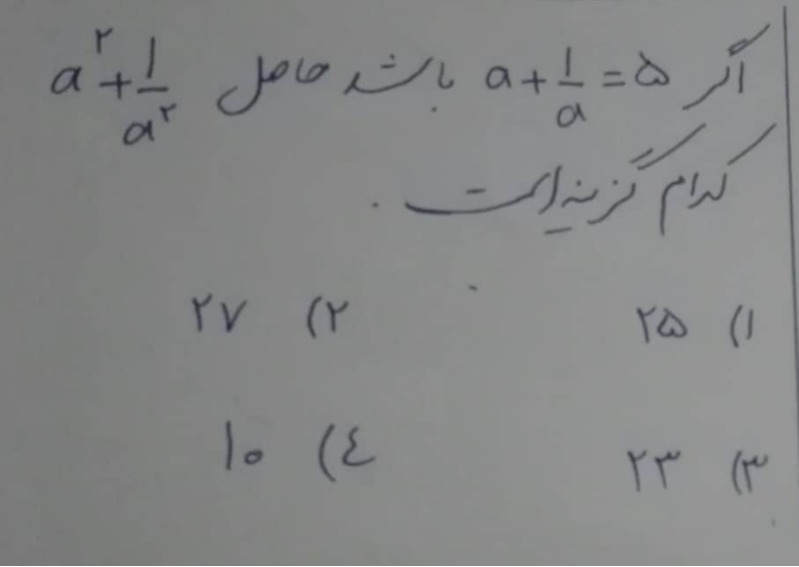 اگر a + 1/a = ۵ باشد حاصل a² + 1/a²
کدام گزینه است.
۱) ۲۵ ۲) ۲۷
۳) ۲۳ ۴) ۱۰